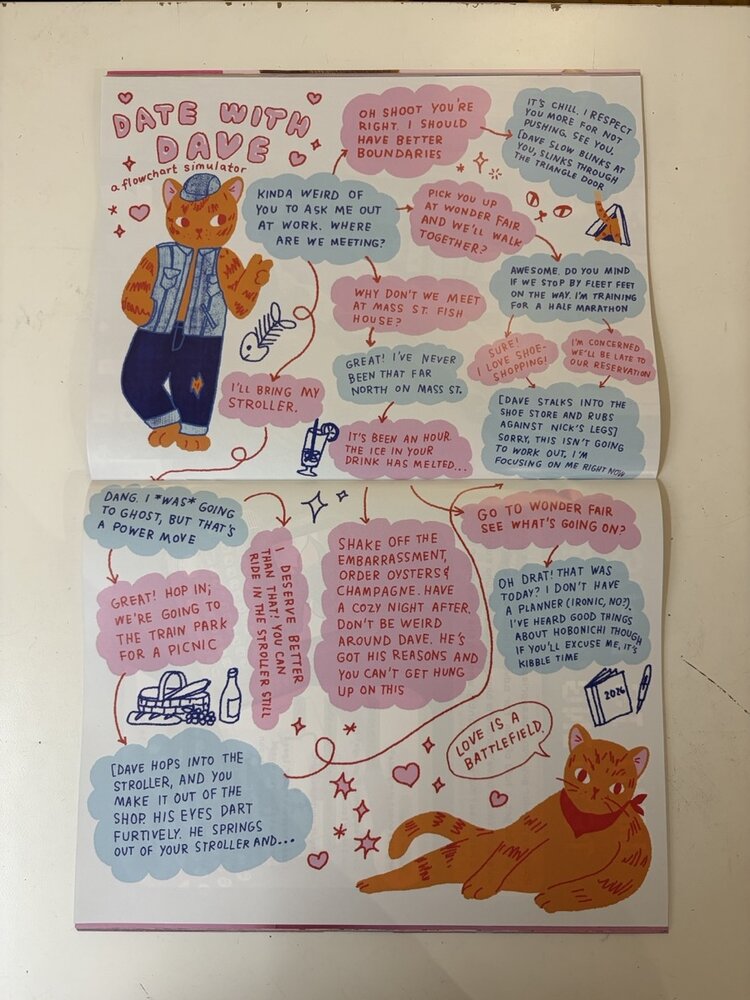 DATE WITH
DAVE
a flowchart simulator
OH SHOOT YOU'RE
RIGHT. I SHOULD
HAVE BETTER
BOUNDARIES
IT'S CHILL. I RESPECT
YOU MORE FOR NOT
PUSHING. SEE YOU.
[DAVE SLOW BLINKS AT
YOU, SLINKS THROUGH
THE TRIANGLE DOOR
KINDA WEIRD OF
YOU TO ASK ME OUT
AT WORK. WHERE
ARE WE MEETING?
PICK YOU UP
AT WONDER FAIR
AND WE'LL WALK
TOGETHER?
AWESOME. DO YOU MIND
IF WE STOP BY FLEET FEET
ON THE WAY. I'M TRAINING
FOR A HALF MARATHON
WHY DON'T WE MEET
AT MASS ST. FISH
HOUSE?
SURE!
I LOVE SHOE-
SHOPPING!
I'M CONCERNED
WE'LL BE LATE TO
OUR RESERVATION
GREAT! I'VE NEVER
BEEN THAT FAR
NORTH ON MASS ST.
I'LL BRING MY
STROLLER.
[DAVE STALKS INTO THE
SHOE STORE AND RUBS
AGAINST NICK'S LEGS]
SORRY, THIS ISN'T GOING
TO WORK OUT, I'M
FOCUSING ON ME RIGHT NOW
IT'S BEEN AN HOUR.
THE ICE IN YOUR
DRINK HAS MELTED...
DANG. I *WAS* GOING
TO GHOST, BUT THAT'S
A POWER MOVE
I DESERVE BETTER
THAN THAT! YOU CAN
RIDE IN THE STROLLER STILL
SHAKE OFF THE
EMBARRASSMENT,
ORDER OYSTERS &
CHAMPAGNE. HAVE
A COZY NIGHT AFTER.
DON'T BE WEIRD
AROUND DAVE. HE'S
GOT HIS REASONS AND
YOU CAN'T GET HUNG
UP ON THIS
GO TO WONDER FAIR
SEE WHAT'S GOING ON?
GREAT! HOP IN;
WE'RE GOING TO
THE TRAIN PARK
FOR A PICNIC
OH DRAT! THAT WAS
TODAY? I DON'T HAVE
A PLANNER (IRONIC, NO?).
I'VE HEARD GOOD THINGS
ABOUT HOBONICHI THOUGH
IF YOU'LL EXCUSE ME, IT'S
KIBBLE TIME
2026
LOVE IS A
BATTLEFIELD.
[DAVE HOPS INTO THE
STROLLER, AND YOU
MAKE IT OUT OF THE
SHOP. HIS EYES DART
FURTIVELY. HE SPRINGS
OUT OF YOUR STROLLER AND...